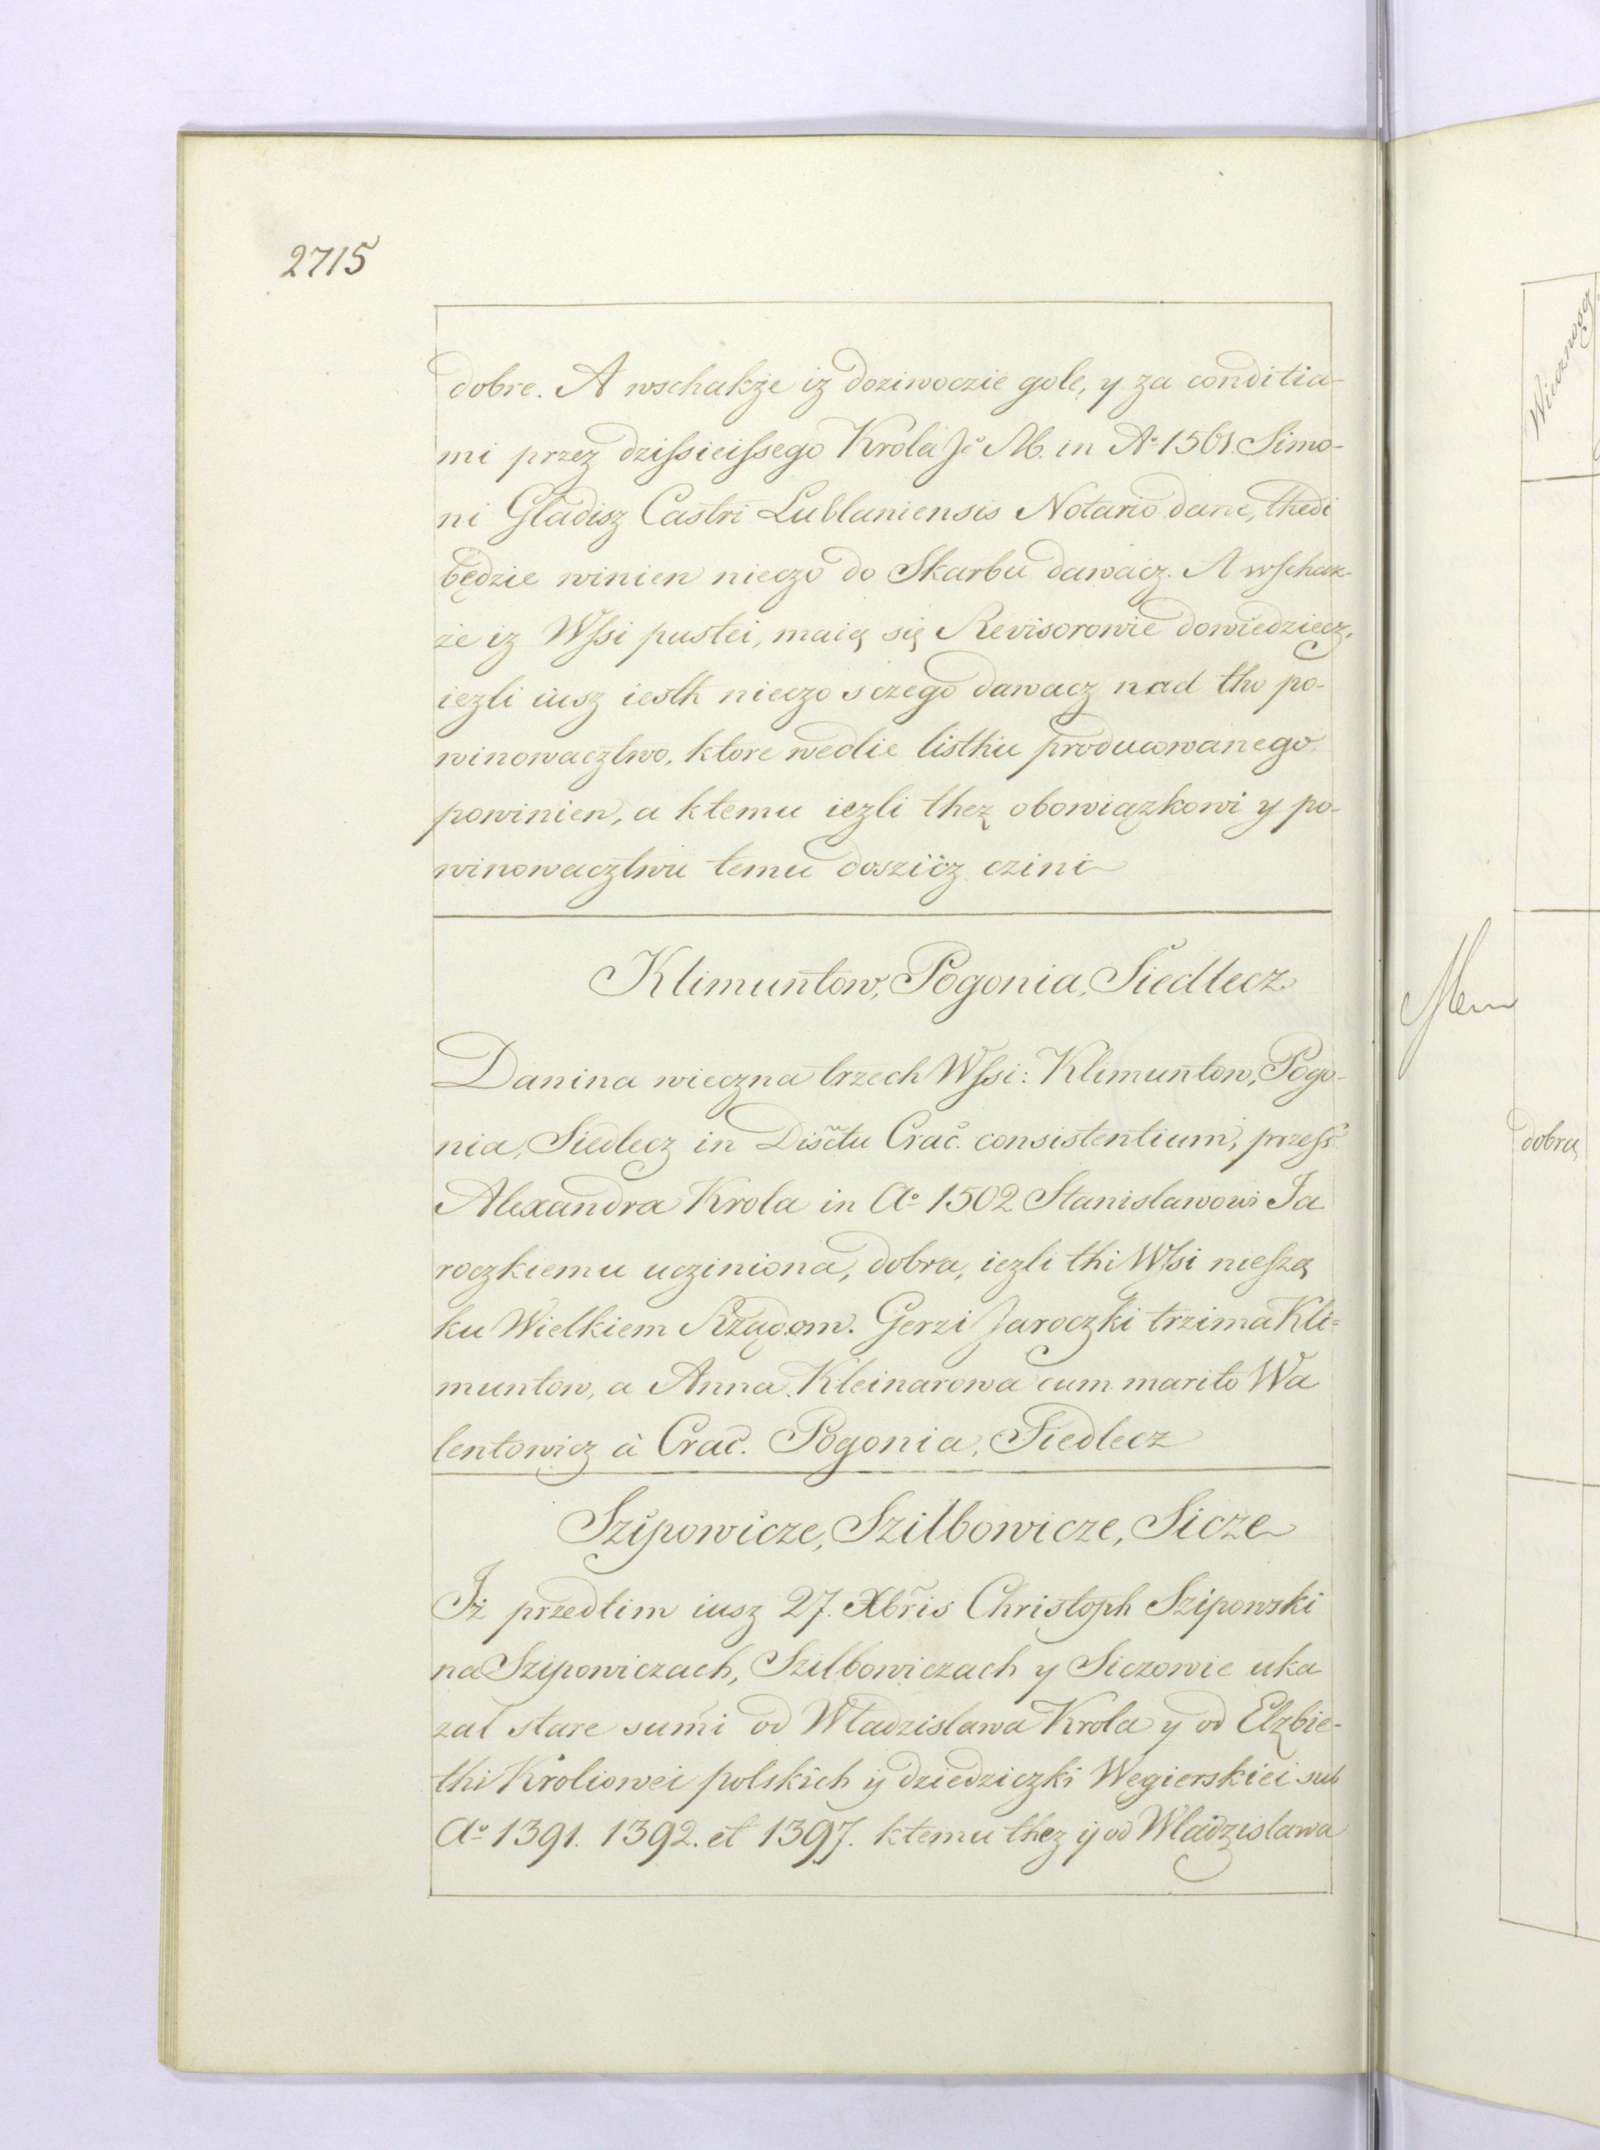 2715
dobre. A wschakże iz doziwoczie gole, y za conditia-
mi przez dziſsieiſsego Krola Jo M. in Ao 1561. Simo-
ni Gladisz Castri Lublaniensis Notario dane, thedi
będzie winien nieczo do Skarbu dawacz. A wſchak-
że iz Wſsi pustei, maią się Revisorowie dowiedziecz,
iezli iusz iesth nieczo sczego dawacz nad tho po-
winowacztwo, ktore wedlie listhu producowanego
powinien, a ktemu iezli thez obowiązkowi y po-
winowacztwu temu doszicz czini
Klimuntow, Pogonia, Siedlecz
Danina wieczna trzech Wſsi: Klimuntow, Pogo-
nia, Siedlecz in Disctu Crac. consistentium, przeſs
Alexandra Krola in Ao 1502 Stanislawowi Ja
roczkiemu ucziniona, dobra, iezli thi Wſsi nieſzą
ku Wielkiem Rządom. Gerzi Jaroczki trzima Kli=
muntow, a Anna Kleinarowa cum marito Wa
lentowicz à Crac. Pogonia, Siedlecz
Szipowicze, Szilbowicze, Sicze
Iż przedtim iusz 27. Xbris Christoph Szipowski
na Szipowiczach, Szilbowiczach y Siczowie uka
zał stare sumi od Wladzislawa Krola y od Elzbie-
thi Kroliowei polskich ij dziedziczki Wegierskiei sub
Ao 1391. 1392. et 1397. ktemu thez ij od Wladzislawa
Wieczność
Item
dobra,